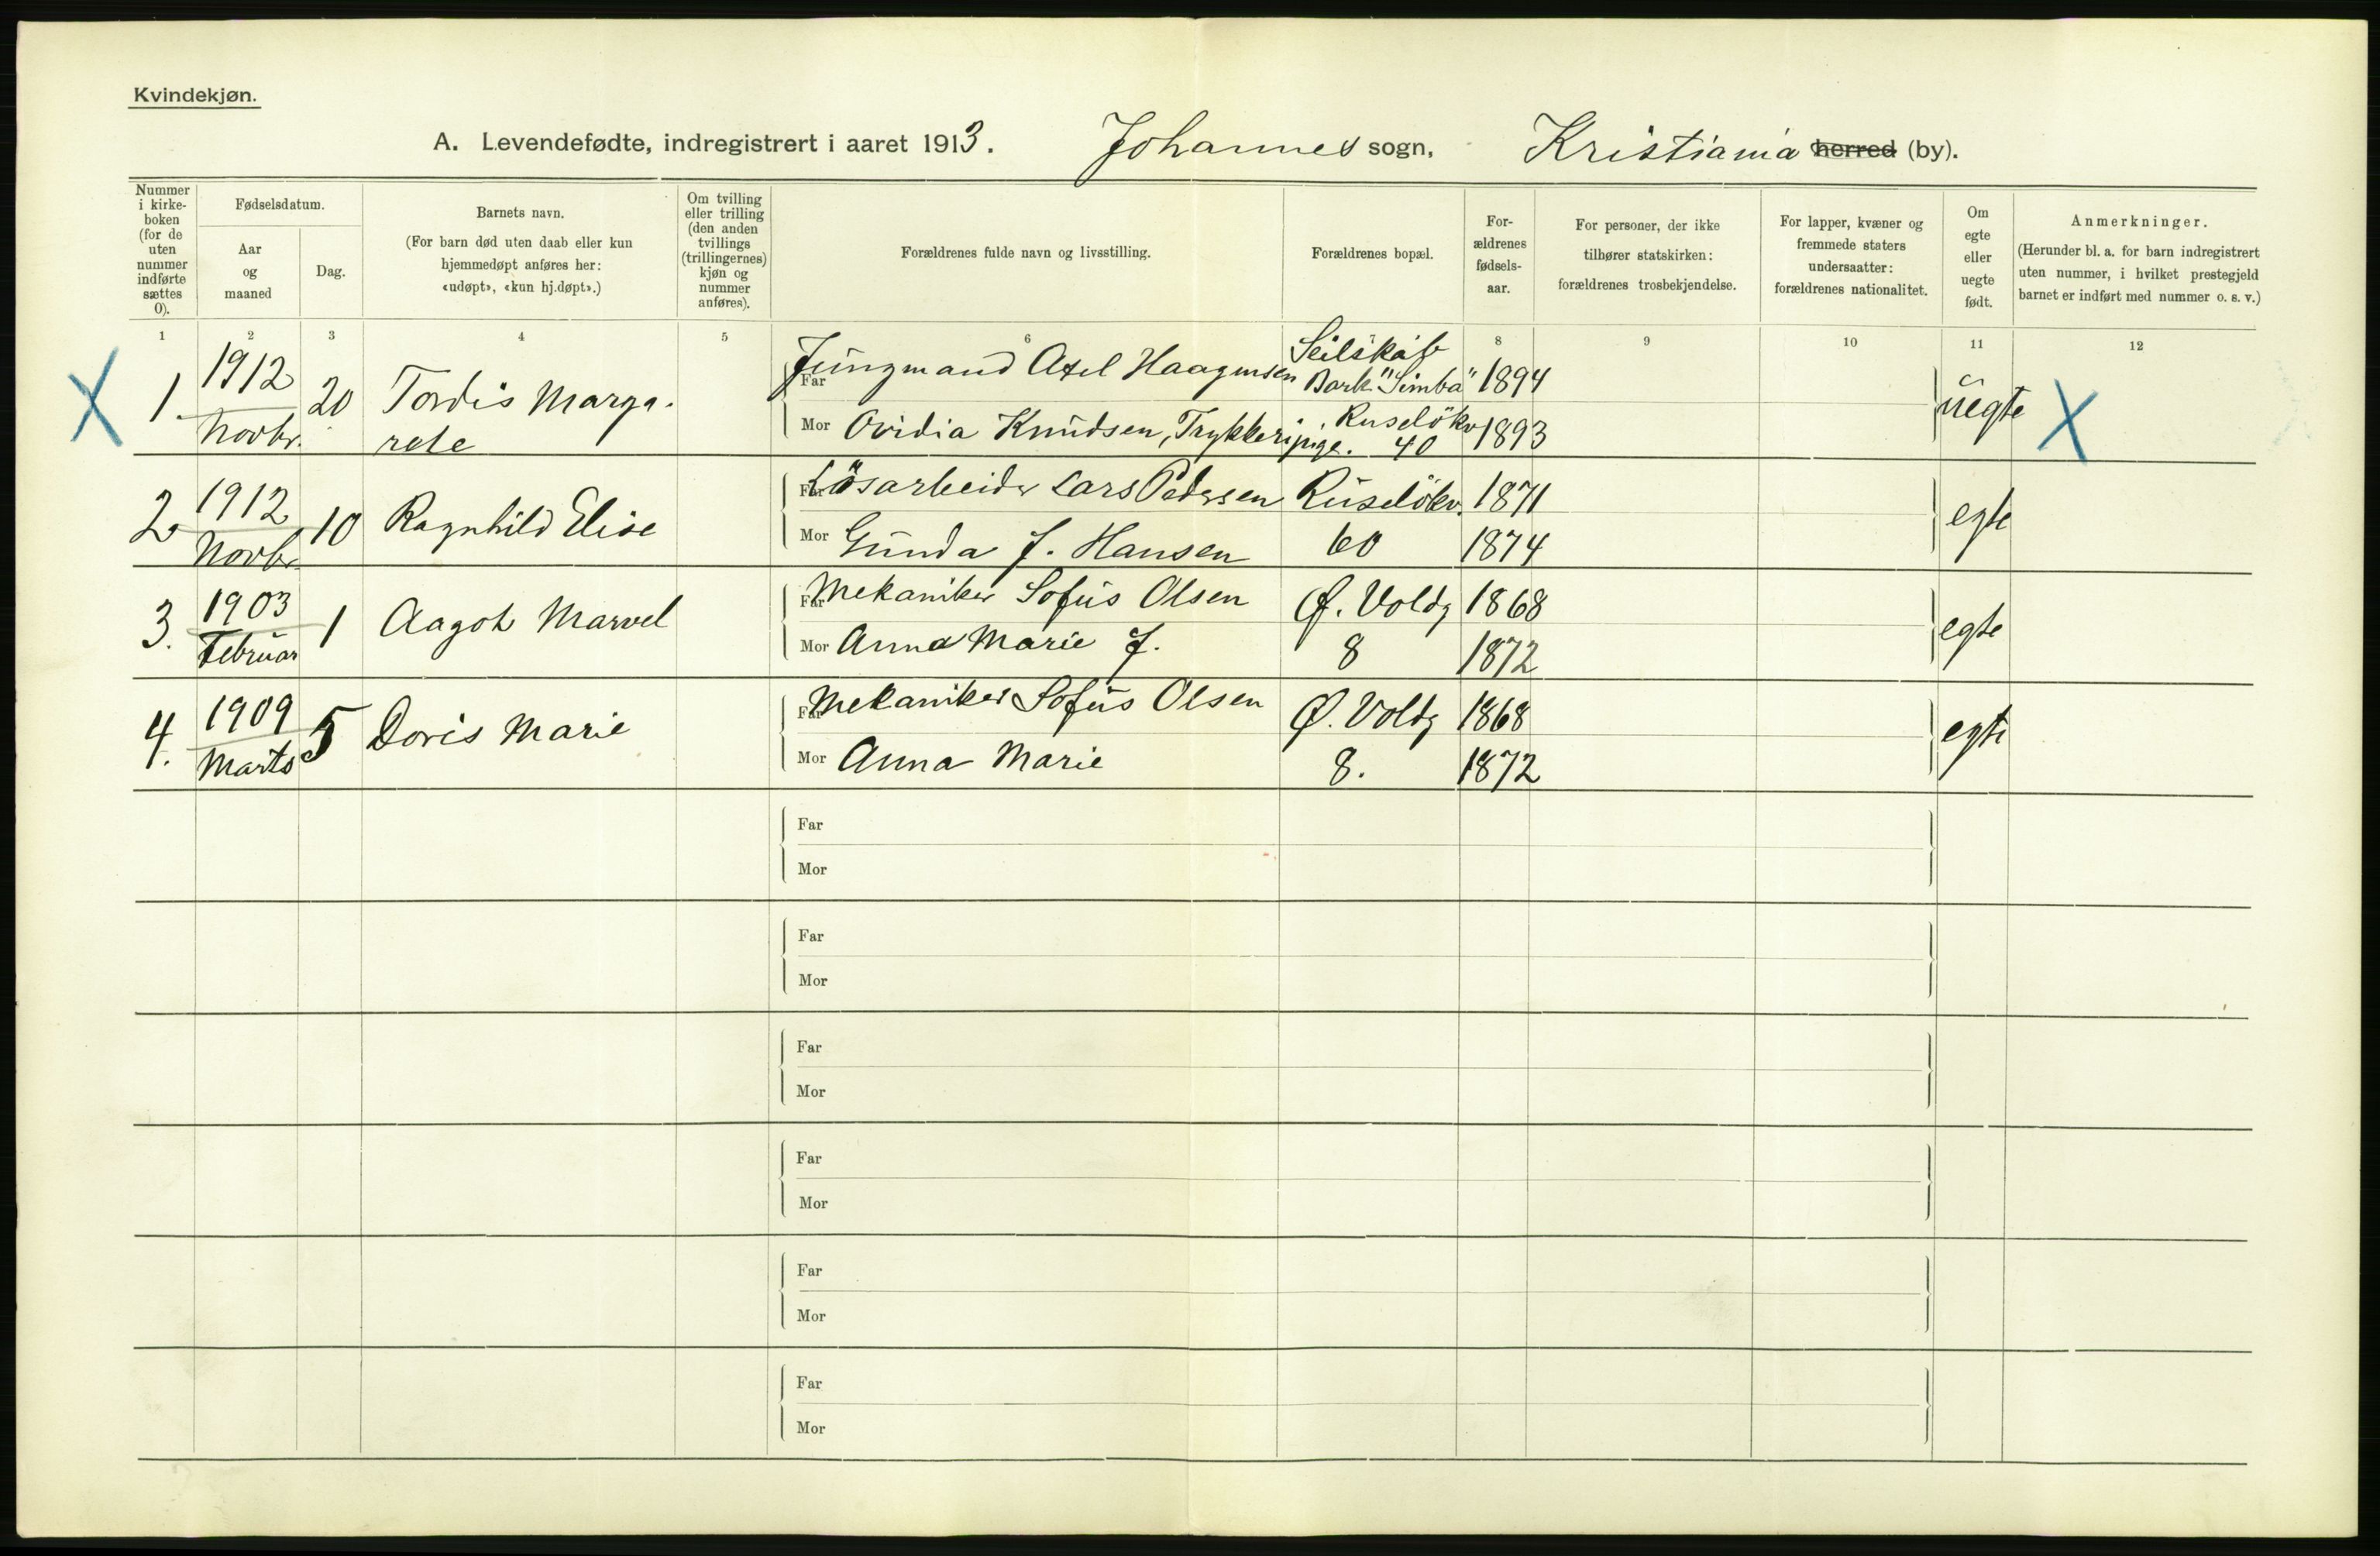 Kvindekjøn.
A. Levendefødte, indregistrert i aaret 1913. Johannes sogn, Kristiania herred (by).
Nummer i kirke-boken (for de uten nummer indførte sættes 0).
Fødselsdatum.
Aar og maaned
Dag.
Barnets navn.
(For barn død uten daab eller kun hjemmedøpt anføres her: «udøpt», «kun hj.døpt».)
Om tvilling eller trilling (den anden tvillings (trillingernes) kjøn og nummer anføres).
Forældrenes fulde navn og livsstilling.
Forældrenes bopæl.
For-ældrenes fødsels-aar.
For personer, der ikke tilhører statskirken: forældrenes trosbekjendelse.
For lapper, kvæner og fremmede staters undersaatter: forældrenes nationalitet.
Om egte eller uegte født.
Anmerkninger.
(Herunder bl. a. for barn indregistrert uten nummer, i hvilket prestegjeld barnet er indført med nummer o. s. v.)
1 2 3 4 5 6 8 9 10 11 12
X 1. 1912 Novbr. 20 Tordis Marga-
rete
Far Jungmand Axel Haagensen Seilskib Bark "Simba" 1894
Mor Ovidia Knudsen, Trykkeripige. Ruseløkv 40 1893
uegte X
2 1912 Novbr. 10 Ragnhild Elise
Far Løsarbeider Lars Pedersen Ruseløkv. 1871
Mor Gunda J. Hansen 60 1874
egte
3. 1903 Februar 1 Aagot Marvel
Far Mekaniker Sofus Olsen Ø. Voldg 1868
Mor Anna Marie J. 8 1872
egte
4. 1909 Marts 5 Doris Marie
Far Mekaniker Sofus Olsen Ø. Voldg 1868
Mor Anna Marie 8. 1872
egte
Far
Mor
Far
Mor
Far
Mor
Far
Mor
Far
Mor
Far
Mor